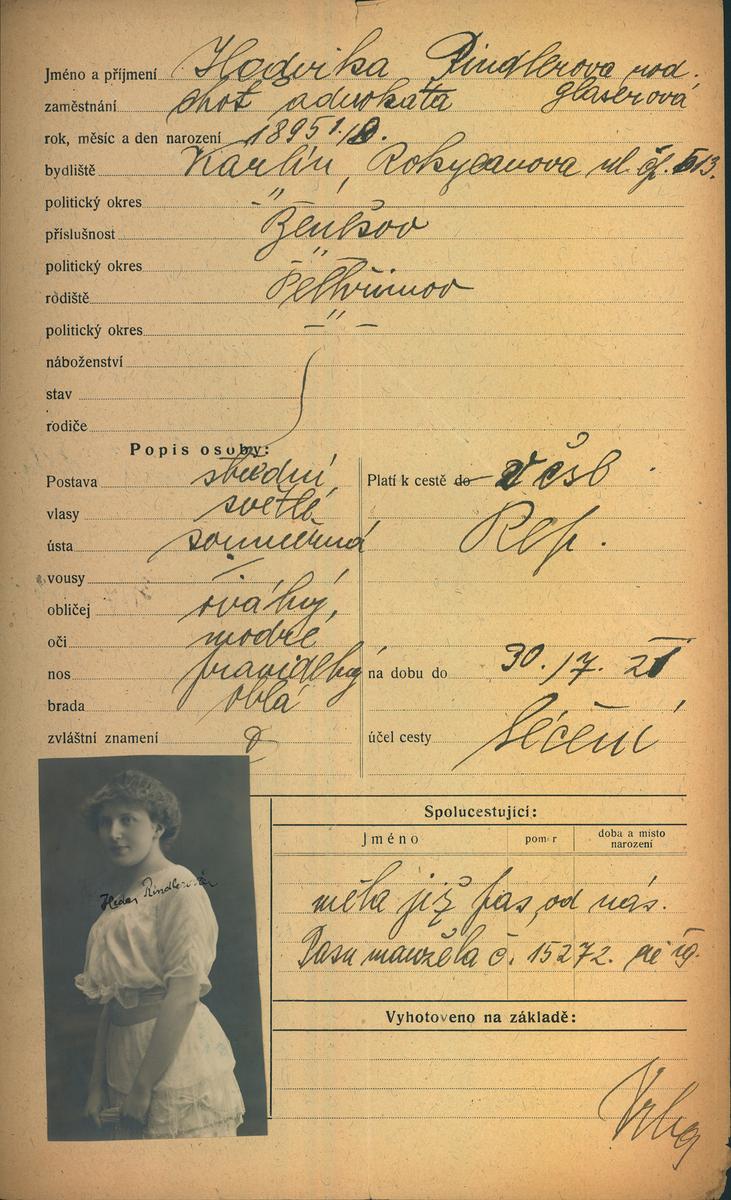 Jméno a příjmení Hedvika Rindlerova rod.
zaměstnání choť advokáta glaserová
rok, měsíc a den narození 1895 1./8.
bydliště Karlín, Rokycanova ul. čp. 513.
politický okres - " -
příslušnost Ženíšov
politický okres - " -
rodiště Pelhřimov
politický okres - " -
náboženství
stav
rodiče
Popis osoby:
Postava střední,
vlasy světlé
ústa souměrná
vousy -
obličej oválný,
oči modré
nos pravidelný
brada oblá
zvláštní znamení
Platí k cestě do v čsl
Rep.
na dobu do 30./7. 21
účel cesty léčení
Heda Rindlerová
Spolucestující:
Jméno poměr doba a místo narození
měla již pas od nás.
Pasu manžela č. 15272.
Vyhotoveno na základě: